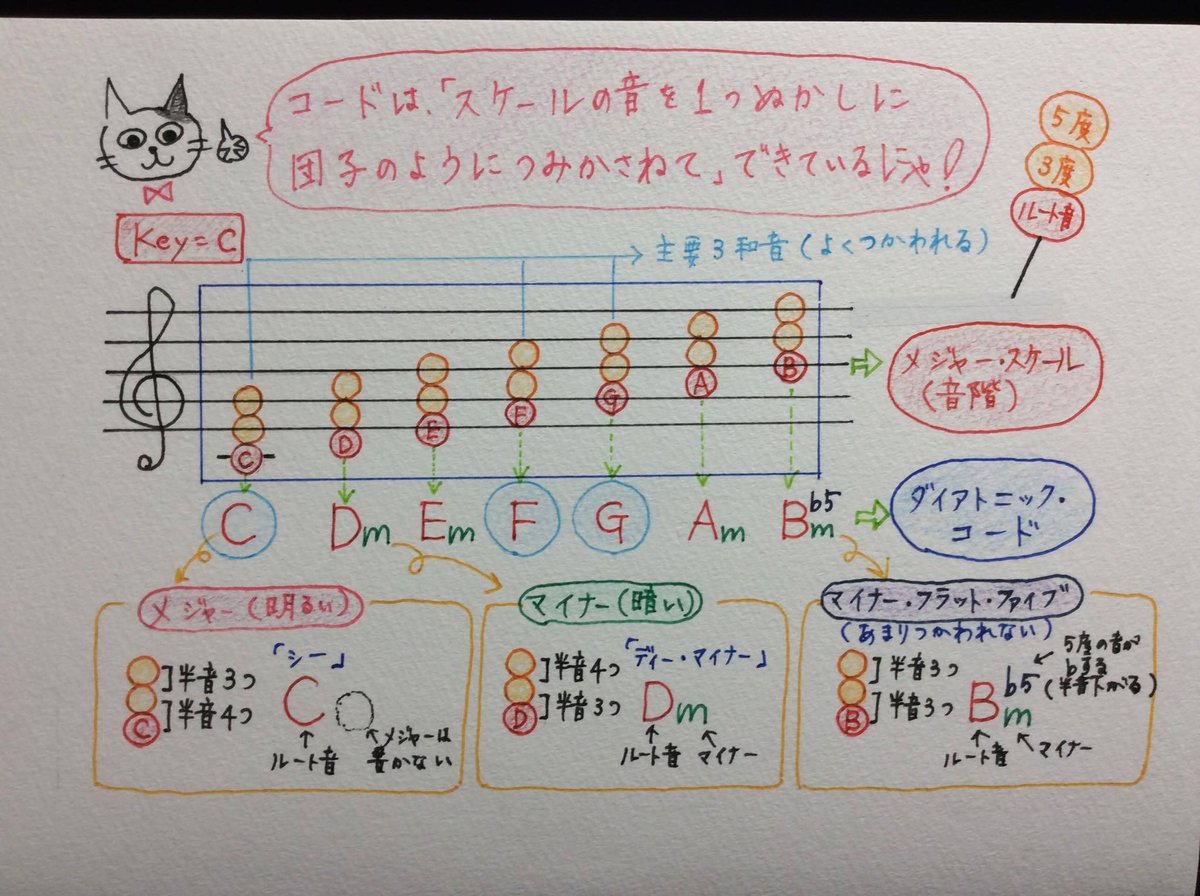 コードは、「スケールの音を1つぬかしに
団子のようにつみかさねて」できているにゃ!
5度
3度
ルート音
Key=C
主要3和音(よくつかわれる)
C
D
E
F
G
A
B
メジャー・スケール
(音階)
C Dm Em F G Am Bm♭5
ダイアトニック・
コード
メジャー(明るい)
半音3つ
半音4つ
C
「シー」
C
ルート音
メジャーは
書かない
マイナー(暗い)
半音4つ
半音3つ
D
「ディー・マイナー」
Dm
ルート音
マイナー
マイナー・フラット・ファイブ
(あまりつかわれない)
半音3つ
半音3つ
B
Bm♭5
5度の音が
♭する
(半音下がる)
ルート音
マイナー